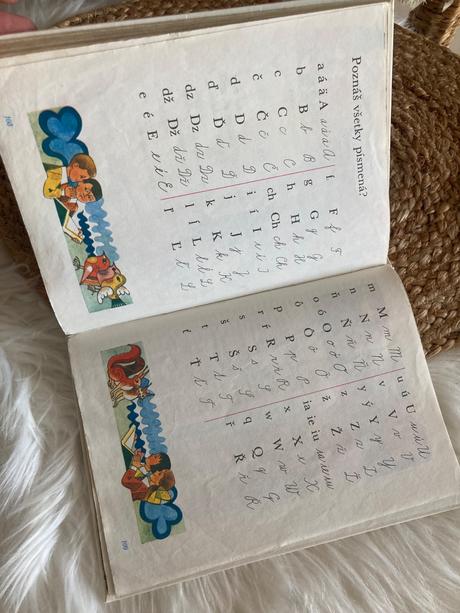 Poznáš všetky písmená?
a á ä A a á ä A
b B b B
c C c C
č Č č Č
d D d D
ď Ď ď Ď
dz Dz dz Dz
dž Dž dž Dž
e é E e é E
f F f F
g G g G
h H h H
ch Ch ch Ch
i í I i í I
j J j J
k K k K
l ĺ L l ĺ L
ľ Ľ ľ Ľ
108
m M m M
n N n N
ň Ň ň Ň
o ó O o ó O
ô Ô ô Ô
p P p P
r ŕ R r ŕ R
s S s S
š Š š Š
t T t T
ť Ť ť Ť
u ú U u ú U
v V v V
y ý Y y ý Y
z Z z Z
ž Ž ž Ž
ia ie iu ia ie iu
x X x X
w W w W
q Q q Q
ř Ř ř Ř
109